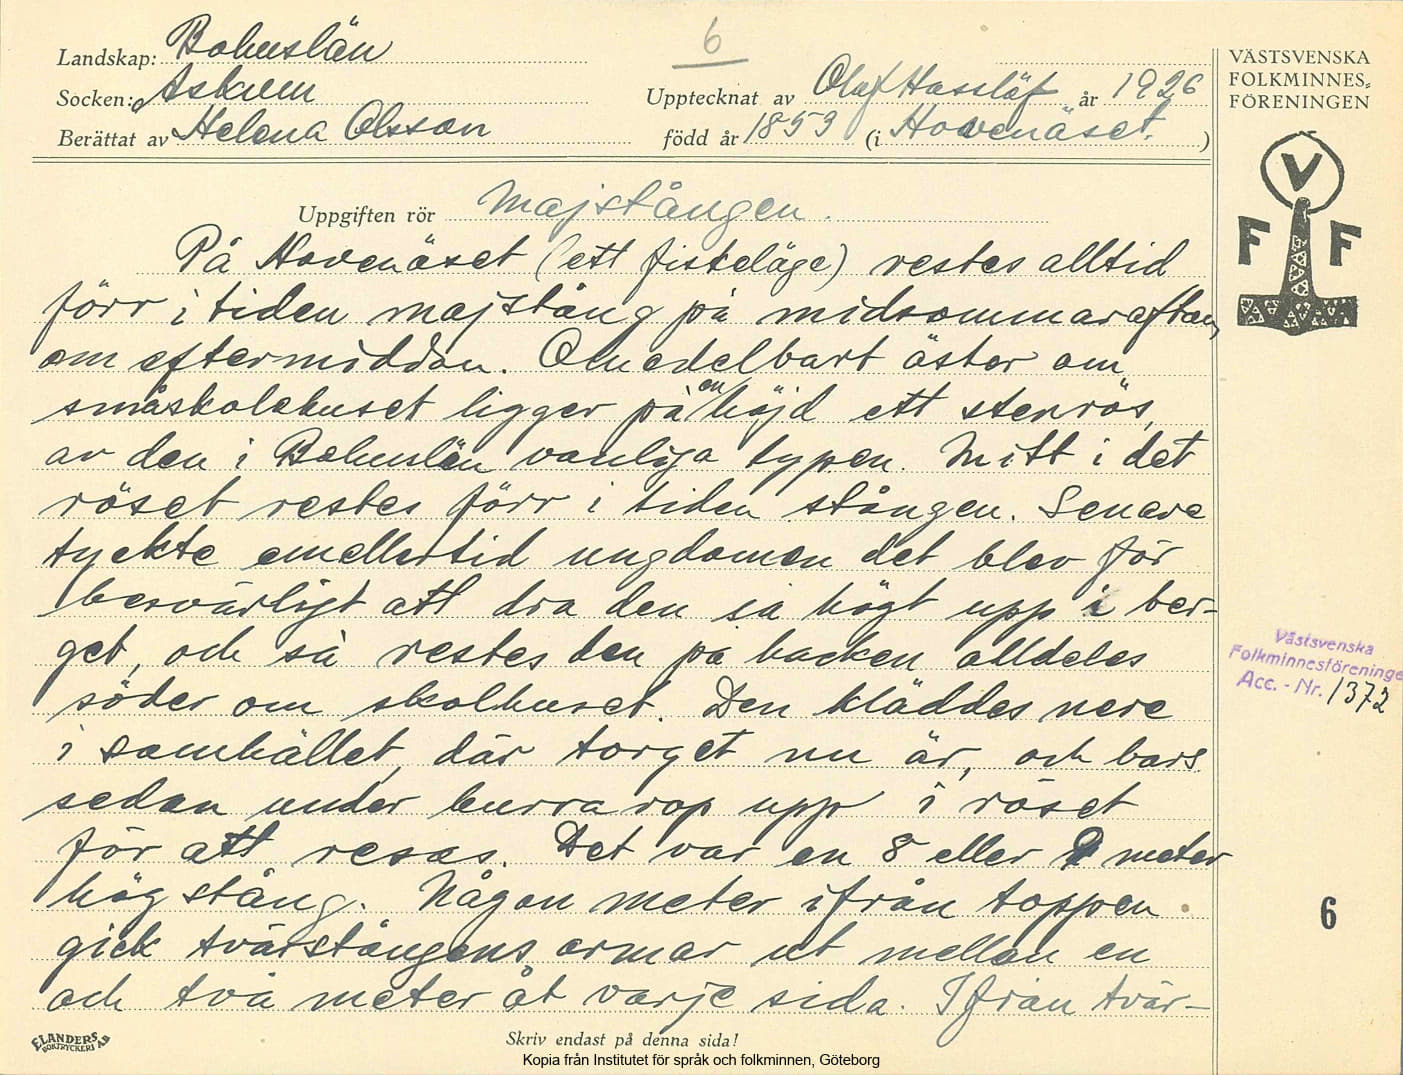 6
Landskap: Bohuslän
Socken: Askum
Upptecknat av Olof Hasslöf år 1926
Berättat av Helena Olsson
född år 1853 (i Hovenäset.)
VÄSTSVENSKA
FOLKMINNES=
FÖRENINGEN
V
F F
Uppgiften rör Majstången.
På Hovenäset (ett fiskeläge) restes alltid
förr i tiden majstång på midsommarafton,
om eftermiddan. Omedelbart öster om
småskolehuset ligger på en höjd ett stenrös,
av den i Bohuslän vanliga typen. Mitt i det
röset restes förr i tiden stången. Senare
tyckte emellertid ungdomen det blev för
besvärligt att dra den så högt upp i ber-
get, och så restes den på backen alldeles
söder om skolhuset. Den kläddes nere
i samhället, där torget nu är, och bars
sedan under hurrarop upp i röset
för att resas. Det var en 8 eller 9 meter
hög stång. Någon meter ifrån toppen
gick tvärstångens armar ut mellan en
och två meter åt varje sida. Ifrån tvär-
Västsvenska
Folkminnesföreninge
Acc. - Nr. 1372
6
ELANDERS
BOKTRYCKERI AB
Skriv endast på denna sida!
Kopia från Institutet för språk och folkminnen, Göteborg